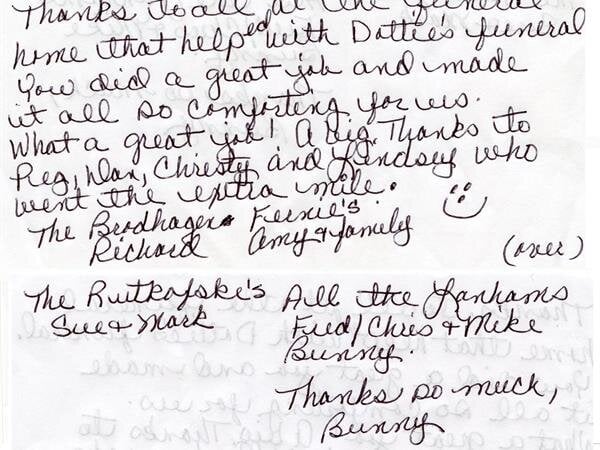 Thanks to all at the funeral
home that helped with Dottie's funeral
You did a great job and made
it all so comforting for us.
What a great job! A Big Thanks to
Reg, Dan, Christy and Lindsey who
went the extra mile.
The Brodhagens Feenie's
Richard Amy & family
(over)
The Rutkofske's All the Lanhams
Sue & Mark Fred/Chris & Mike
Bunny.
Thanks so much,
Bunny